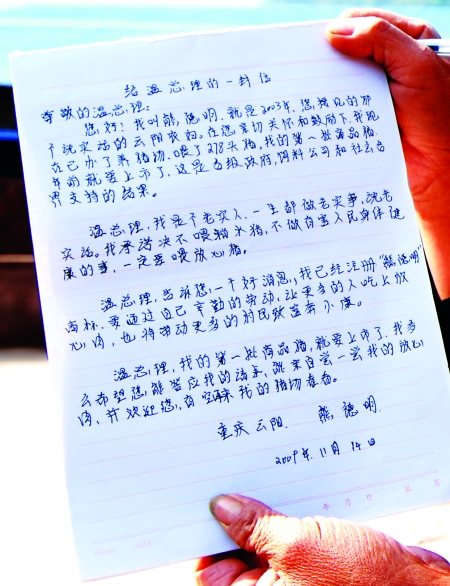 给温总理的一封信
尊敬的温总理:
您好!我叫熊德明,就是2003年,您接见的那
个说实话的云阳农妇。在您亲切关怀和鼓励下,我现
在已办了养猪场,喂了278头猪,我的第一批商品猪
年前就要上市了,这是各级政府,饲料公司和社会各
界支持的结果。
温总理,我是个老实人,一生都做老实事,说老
实话。我承诺决不喂泔水猪,不做自害人民身体健
康的事,一定要喂放心猪。
温总理,告诉您一个好消息,我已经注册“熊德明”
商标,要通过自己辛勤的劳动,让更多的人吃上放
心肉,也将带动更多的村民致富奔小康。
温总理,我的第一批商品猪,就要上市了,我多
么希望您,能答应我的请求,就来自尝一尝我的放心
肉,并欢迎您,有空来我的猪场看看。
重庆云阳 熊德明
2009年.11月14日
年 月 日